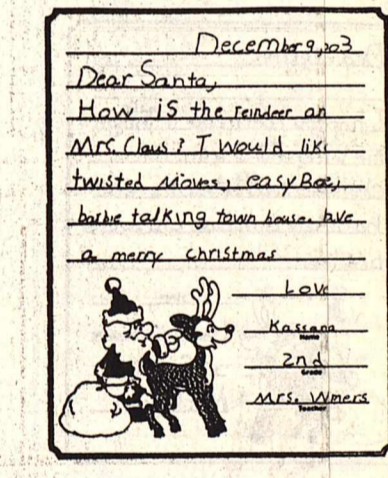 December 9, 203
Dear Santa,
How is the reindeer an
Mrs. Claus? I would lik
twisted Moves, easy Bae,
barbie talking town house. hve
a merry christmas
Love
Kassana
Name
2nd
Grade
Mrs. Wmers
Teacher